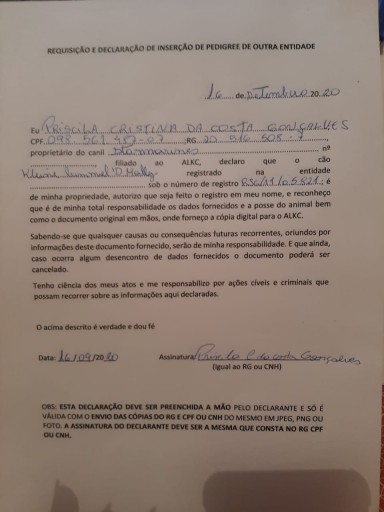 REQUISIÇÃO E DECLARAÇÃO DE INSERÇÃO DE PEDIGREE DE OUTRA ENTIDADE
16 de Setembro 2020
Eu PRISCILA CRISTINA DA COSTA GONÇALVES
CPF RG
proprietário do canil nº
filiado ao ALKC, declaro que o cão
registrado na entidade
sob o número de registro é
de minha propriedade, autorizo que seja feito o registro em meu nome, e reconheço
que é de minha total responsabilidade os dados fornecidos e a posse do animal bem
como o documento original em mãos, onde forneço a cópia digital para o ALKC.
Sabendo-se que quaisquer causas ou consequências futuras recorrentes, oriundos por
informações deste documento fornecido, serão de minha responsabilidade. E que ainda,
caso ocorra algum desencontro de dados fornecidos o documento poderá ser
cancelado.
Tenho ciência dos meus atos e me responsabilizo por ações cíveis e criminais que
possam recorrer sobre as informações aqui declaradas.
O acima descrito é verdade e dou fé
Data: 16/09/2020 Assinatura: Priscila C da costa Gonçalves
(Igual ao RG ou CNH)
OBS: ESTA DECLARAÇÃO DEVE SER PREENCHIDA A MÃO PELO DECLARANTE E SÓ É
VÁLIDA COM O ENVIO DAS CÓPIAS DO RG E CPF OU CNH DO MESMO EM JPEG, PNG OU
FOTO. A ASSINATURA DO DECLARANTE DEVE SER A MESMA QUE CONSTA NO RG CPF
OU CNH.